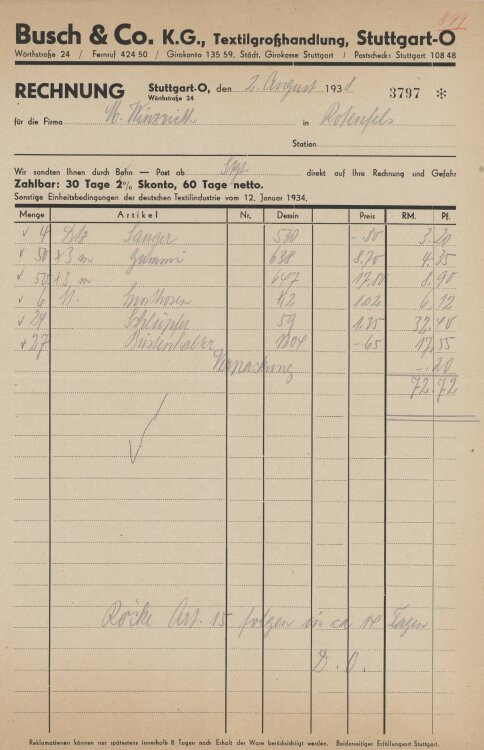 899
Busch & Co. K.G., Textilgroßhandlung, Stuttgart-O
Wörthstraße 24 / Fernruf 424 50 / Girokonto 135 59, Städt. Girokasse Stuttgart / Postscheck: Stuttgart 108 48
RECHNUNG Stuttgart-O, den 2. August 1938 3797 *
Wörthstraße 24
für die Firma M. in Rotenfels
Station
Wir sandten Ihnen durch Bahn — Post ob direkt auf Ihre Rechnung und Gefahr
Zahlbar: 30 Tage 2% Skonto, 60 Tage netto.
Sonstige Einheitsbedingungen der deutschen Textilindustrie vom 12. Januar 1934.
Menge Artikel Nr. Dessin Preis RM. Pf.
4 Dtz 530 -.80 3.20
50 x 3 m Gummi 638 8.70 4.35
50 x 3 m 647 17.80 8.90
6 St. K2 1.02 6.12
24 Schlüpfer 59 1.35 32.40
27 Büstenhalter 1204 -.65 17.55
Verpackung -.20
72.72
Röcke Art. 15 folgen in ca 14 Tagen
D. O.
Reklamationen können nur spätestens innerhalb 8 Tagen nach Erhalt der Ware berücksichtigt werden. Beiderseitiger Erfüllungsort Stuttgart.